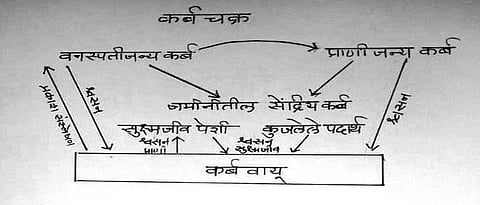 कर्ब चक्र
वनस्पतीजन्य कर्ब प्राणी जन्य कर्ब
प्रकाश संश्लेषण श्वसन श्वसन
जमीनीतील सेंद्रिय कर्ब
सुक्ष्मजीव पेशी कुजलेले पदार्थ
श्वसन श्वसन
प्राणी सुक्ष्मजीव
कर्ब वायू